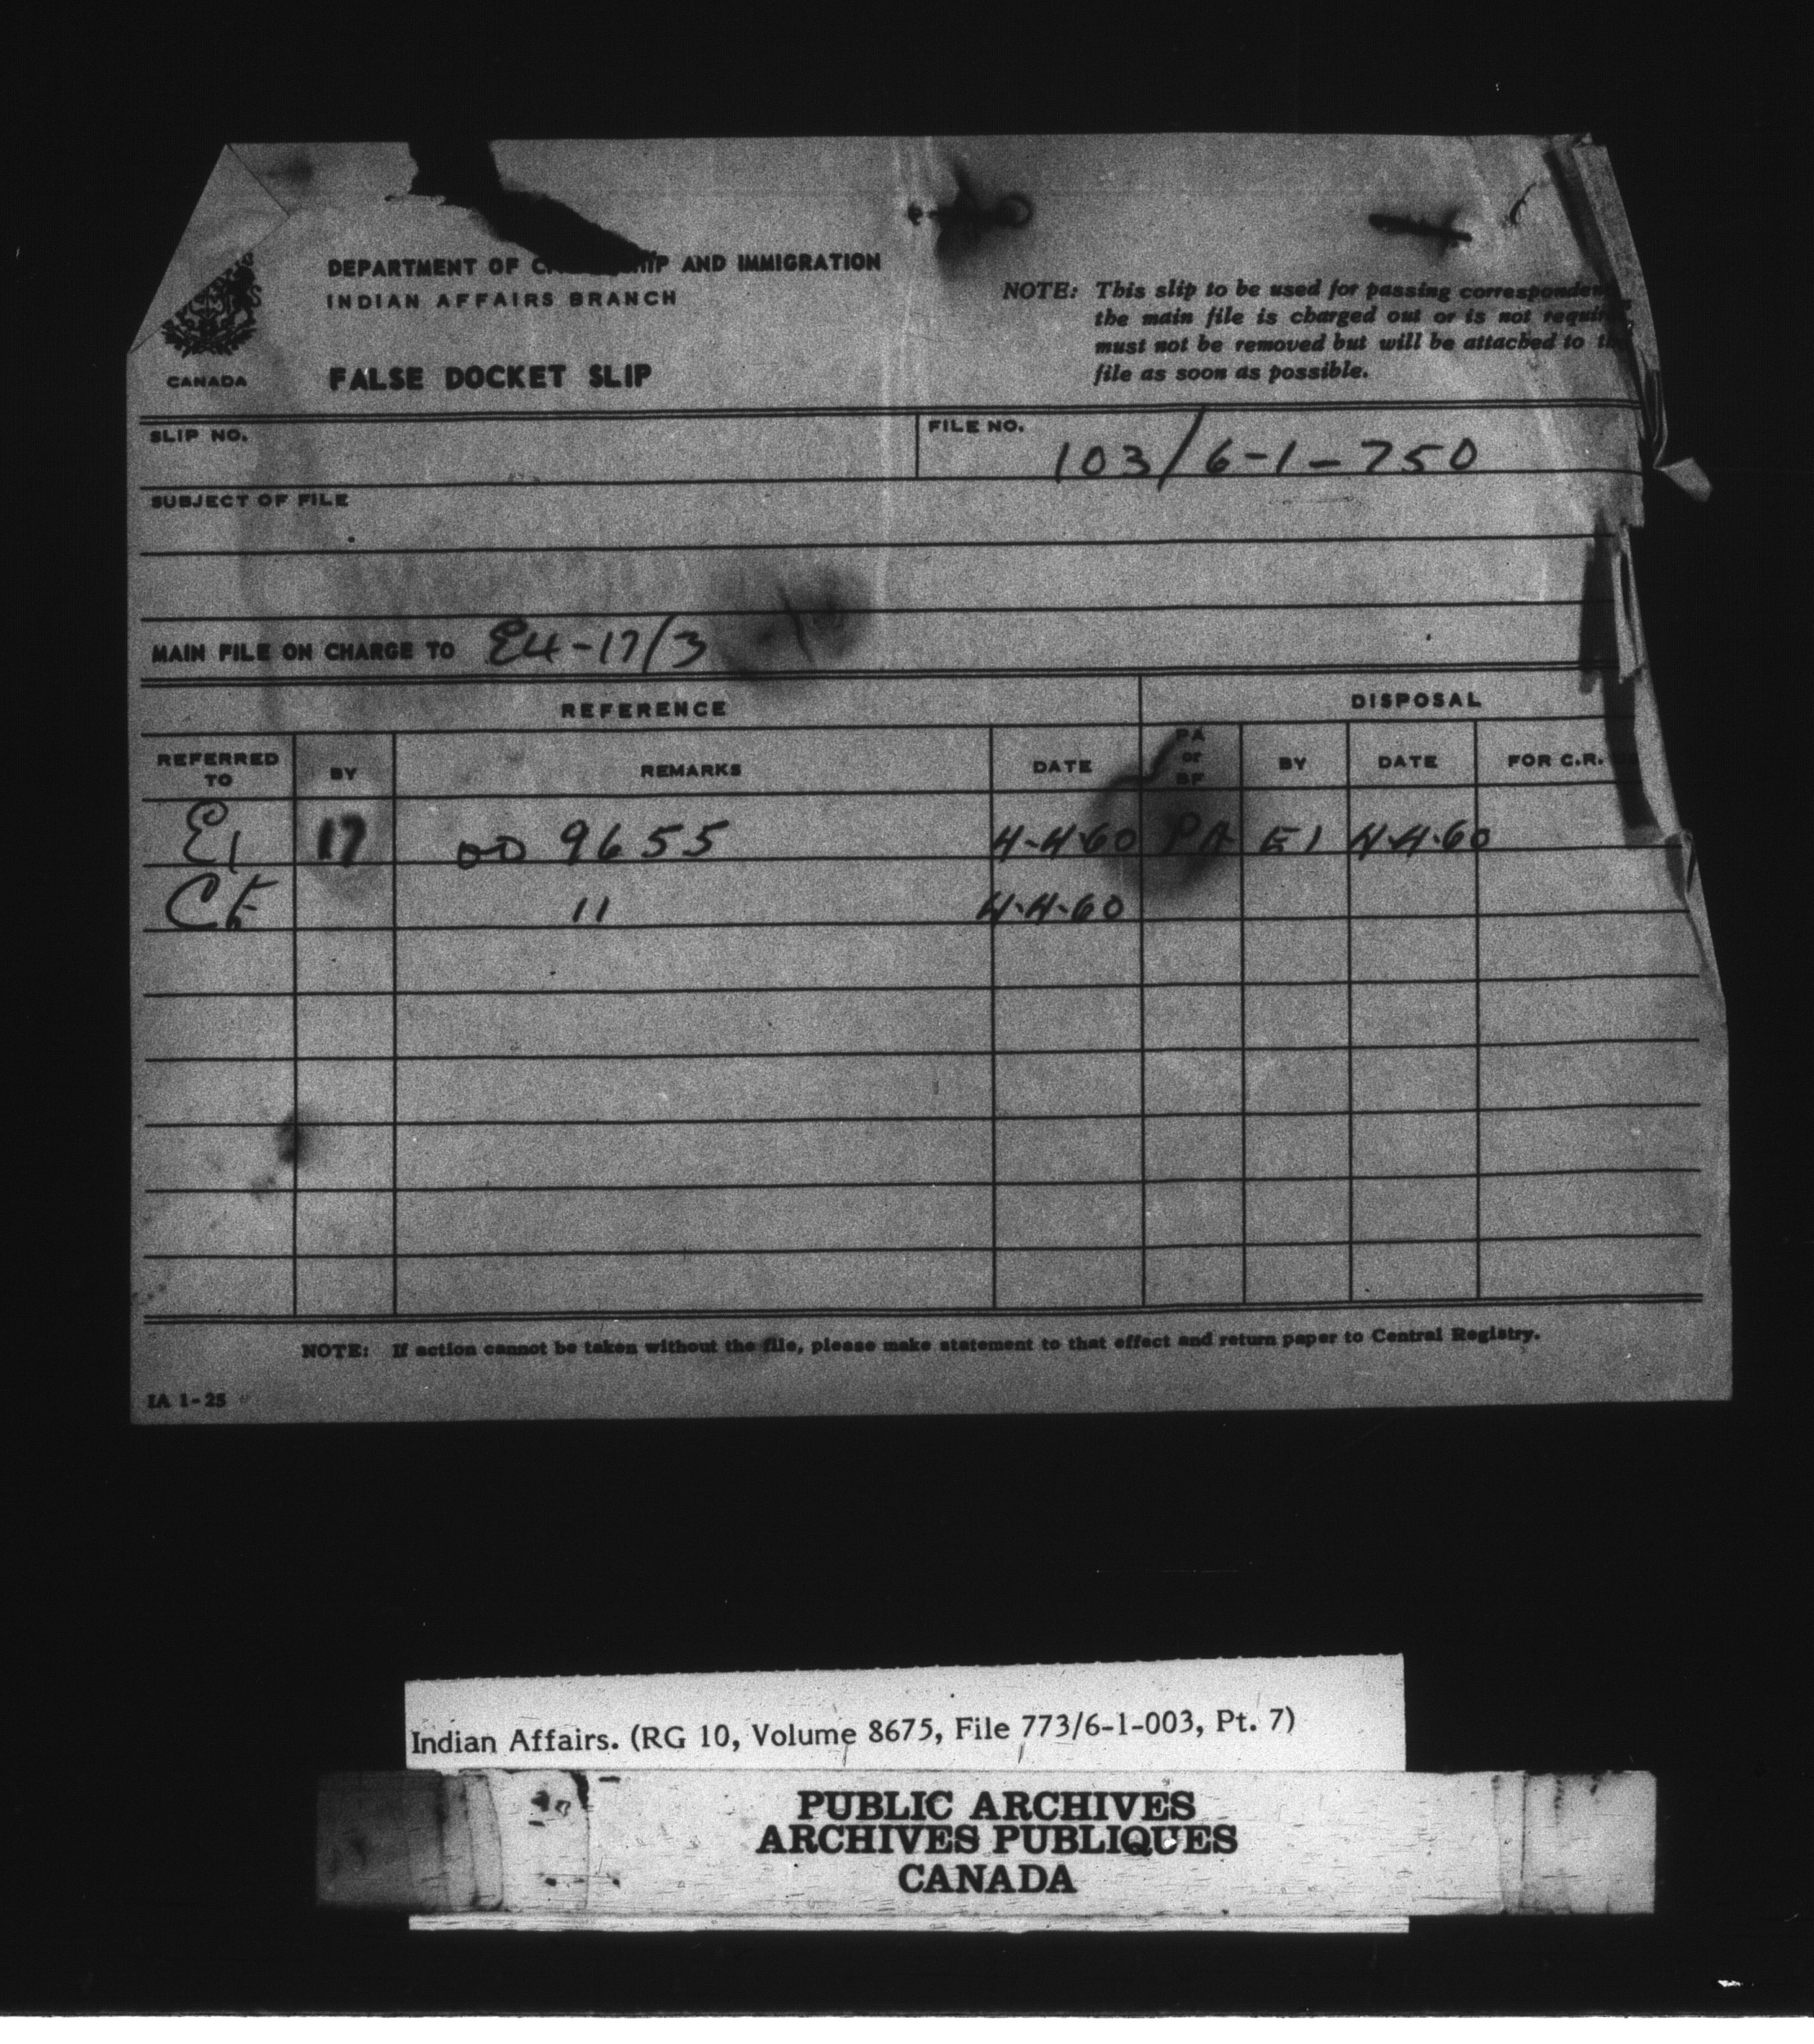 DEPARTMENT OF C HIP AND IMMIGRATION
INDIAN AFFAIRS BRANCH
CANADA
FALSE DOCKET SLIP
NOTE: This slip to be used for passing corresponden
the main file is charged out or is not requir
must not be removed but will be attached to th
file as soon as possible.
SLIP NO.
FILE NO. 103/6-1-750
SUBJECT OF FILE
MAIN FILE ON CHARGE TO E4-17/3
REFERENCE DISPOSAL
REFERRED TO BY REMARKS DATE PA or BF BY DATE FOR C.R.
E1 17 9655 4-4-60 PA E1 4-4-60
11 4-4-60
NOTE: If action cannot be taken without the file, please make statement to that effect and return paper to Central Registry.
IA 1-25
Indian Affairs. (RG 10, Volume 8675, File 773/6-1-003, Pt. 7)
PUBLIC ARCHIVES
ARCHIVES PUBLIQUES
CANADA